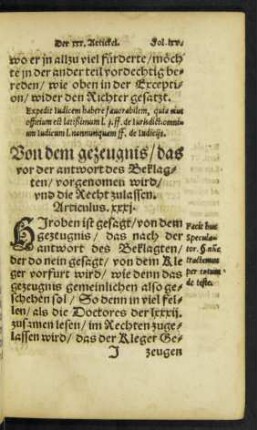 Der xxx. Artickel. Fol. lxv.
wo er jn allzu viel fürderte / möch/
te jn der ander teil vordechtig be/
reden / wie oben in der Excepti/
on / wider den Richter gesatzt.
Expedit Iudicem habere fauorabilem, quia eius
officium est latissimum l. j. ff. de Iurisdictione om
nium Iudicum l. nonnunquam ff. de Iudicijs.
Von dem gezeugnis / das
vor der antwort des Beklag/
ten / vorgenomen wird /
vnd die Recht zulassen.
Articulus. xxxj.
HJroben ist gesagt / von dem
gezeugnis / das nach der
antwort des Beklagten /
der do nein gesagt / von dem Kle
ger vorfurt wird / wie denn das
gezeugnis gemeinlichen also ge/
schehen sol / So denn in viel fel/
len / als die Doctores der lxxxij.
zusamen lesen / im Rechten zuge/
lassen wird / das der Kleger Ge/
J zeugen
Facit huc
Specula-
tor.
tractamus
per totum
de teste.